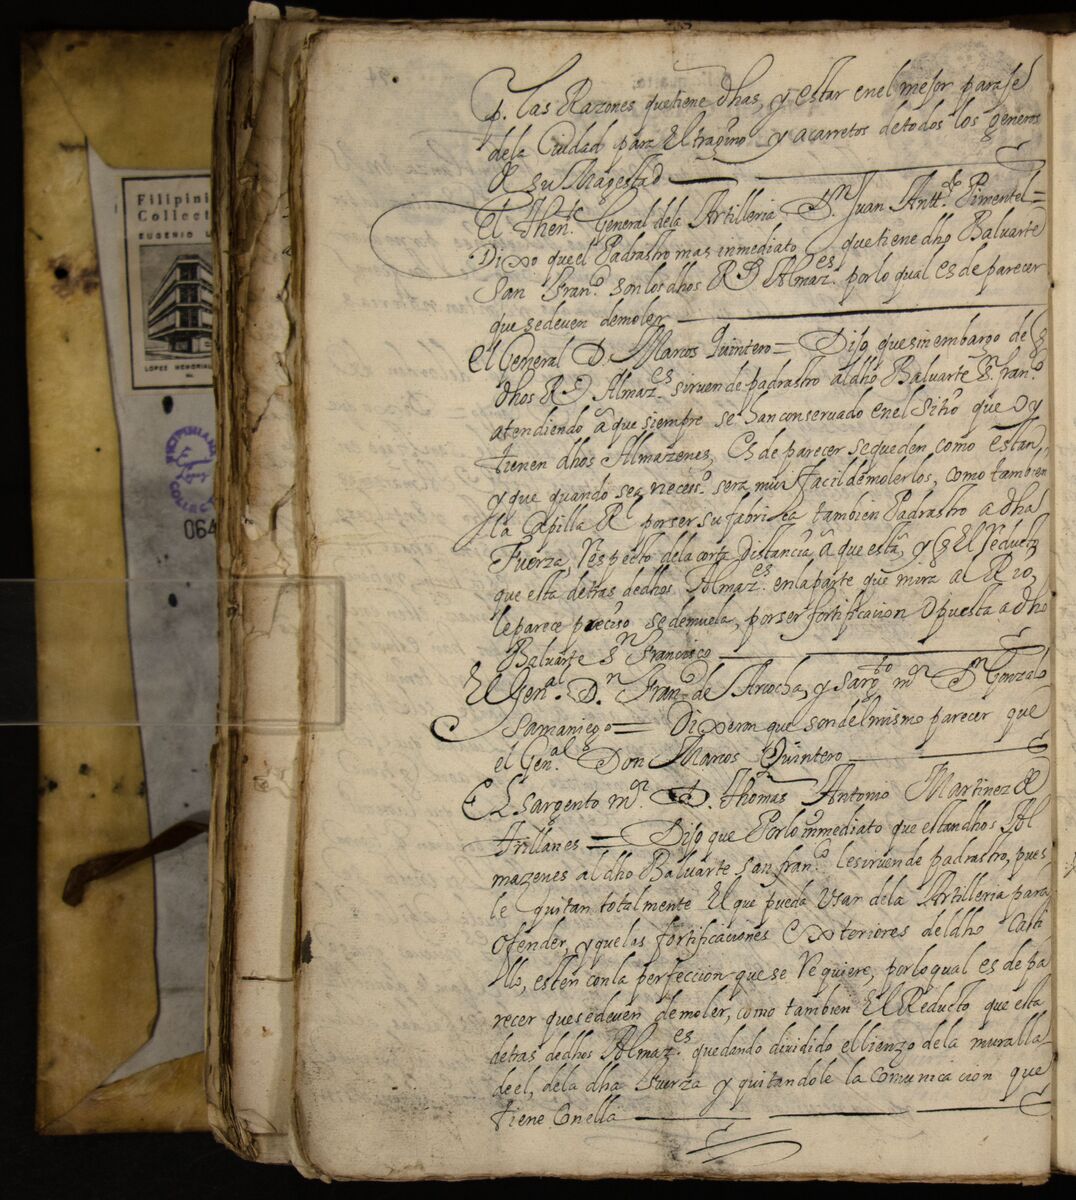 Filipini
Collect
EUGENIO L
LOPEZ MEMORIAL
FILIPINIANA
COLLEC
064
p. las Razones que tiene dhas, y estar en el mejor paraje
dela Ciudad para El tragino y acarretos de todos los generos
de su Magestad
El Thente. General dela Artilleria Dn. Juan Antto. Pimentel =
Dixo que el Padrastro mas inmediato que tiene dho Baluarte
San Franco. son los dhos Rs Almazes. por lo qual es de parecer
que se deven demoler
El General D. Marcos Quintero = Dijo que sin embargo de q
dhos Rs Almazes. sirven de padrastro al dho Baluarte Sn. franco.
atendiendo â que siempre se han conservado en el Sitio que oy
tienen dhos Almazenes, Es de parecer se queden como estan,
y que quando sea necesso. sera mui facil demolerlos, como tambien
la Capilla Rl por ser su fabrica tambien Padrastro a dha
Fuerza, respecto dela corta Distancia â que está, y q El reducto
que esta detras de dhos Almazes. en la parte que mira al Rio,
le parece preciso se demuela, por ser fortificacion Opuesta a dho
Baluarte Sn Francisco
El Genal. Dn Franco. de Arocha, y sargto mr Dn Gonzalo
Samaniego = Dixeron que son del mismo parecer que
el Genal. Don Marcos Quintero
El Sargento mr. D. Thomas Antonio Martinez de
Trillanes = Dijo que Por lo inmediato que estan dhos Al
mazenes al dho Baluarte san franco. le sirven de padrastro, pues
le quitan totalmente El que pueda usar dela Artilleria para
Ofender, y que las fortificaciones Exteriores del dho Casti
llo, esten con la perfeccion que se requiere, por lo qual es de pa
recer que se deven demoler, como tambien El Reducto que esta
detras de dhos Almazes. quedando dividido el lienzo dela muralla
de el, dela dha Fuerza y quitandole la comunicacion que
tiene Con ella